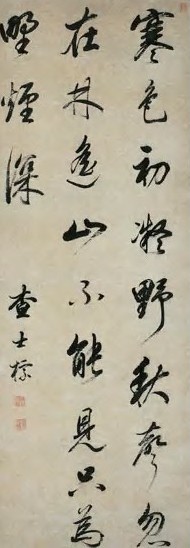 寒色初凝野秋聲忽
在林遙山不能見只為
暝煙深
查士標